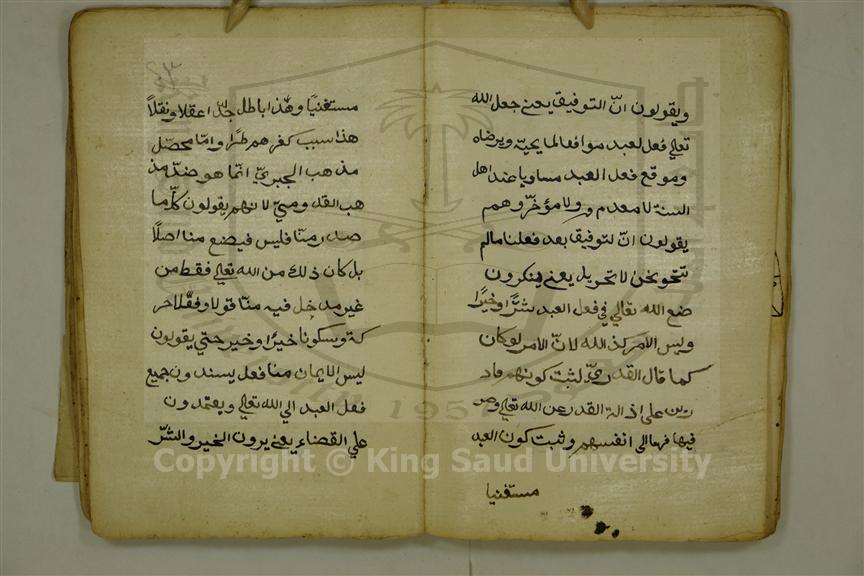 ويقولون انّ التوفيق يعني جعل الله
تعالي فعل لعبد موافعا لما يحبّه ويرضاه
وموقع فعل العبد مساويا عند اهل
السنة لا معدم ولا مؤخّر وهم
يقولون انّ لتوفيقا بعد فعلنا مالم
نتحو نحن لا تحويل يعني ينكرون
ضع الله تعالي في فعل العبد شرًّا وخيرًا
وليس الامر كذ الله لانّ الامر لو كان
كما قال القدريّ لثبت كونهم قاد
رين علي اذالة القدر عن الله تعالي وصر
فيها فهما الى انفسهم وثبت كون العبد
مستغنيا
مستغنيًا وهذا باطل جدّا عقلا ونقلاً
هذا سبب كفرهم طرًّا وامّا محصّل
مذهب الجبريّ انّما هو ضدّ مذ
هب القدوميّ لانهم يقولون كلّ ما
صدر منّا فليس فيضع منا اصلاً
بل كان ذلك من الله تعالي فقط من
غير مدخل فيه منّا قولا وفعلا حر
كة وسكونا خيرًا وخير حتي يقولون
ليس الايمان منا فعل يسندون جميع
فعل العبد الي الله تعالي ويعتمدون
علي القضاء يعني يرون الخير والشرّ
Copyright © King Saud University
1957